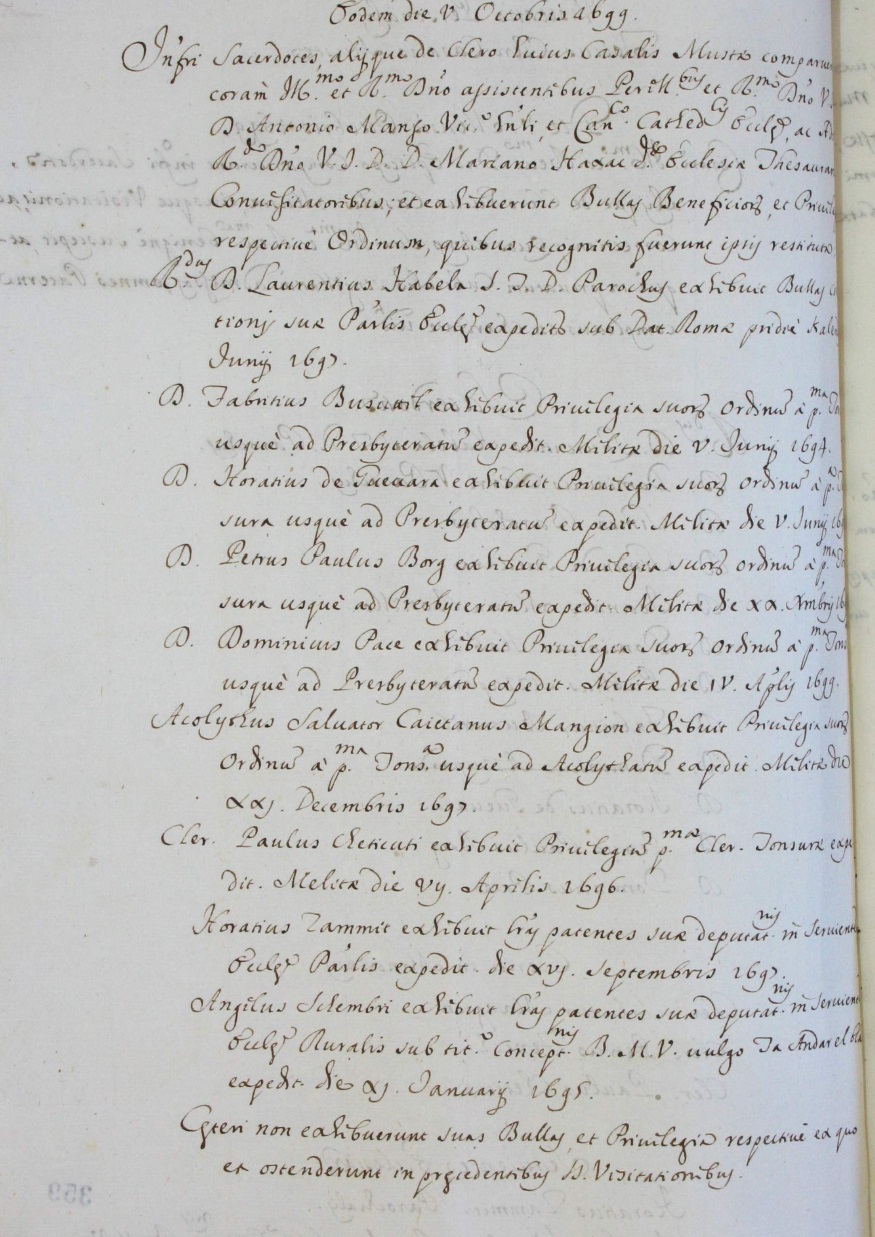 Eodem die V. Octobris 1699.
Infri Sacerdoces, alijque de Clero huius Casalis Mustæ comparue
coram Ill.mo et R.mo Dño assistentibus Perill.bus et R.mo Dño V.
D. Antonio Manso Vic.o et Can.co Cathed. Eccl.æ, ac Ad
R.do Dño V. I. D. D. Mariano Haxac d.æ Ecclesiæ Thesaurar
Convisitatoribus; et exhibuerunt Bullas Beneficior, et Privil
respectivè Ordinum, quibus recognitis fuerunt ipsis restituta
R.dus D. Laurentius Habela S. T. D. Parochus exhibuit Bullas
tionis suæ Parlis Eccl.æ expedit. sub Dat. Romæ pridiè Kalen
Junij 1697.
D. Fabritius Busuttil exhibuit Privilegia suor ordinũ à p.ma Ton
usquè ad Presbyteratũ expedit. Militæ die V. Junij 1694.
D. Horatius de Guevara exhibuit Privilegia suor ordinũ à p.a
sura usquè ad Presbyteratũ expedit. Militæ die V. Junij 169
D. Petrus Paulus Borg exhibuit Privilegia suor ordinũ à p.ma Ton
sura usquè ad Presbyteratũ expedit. Militæ die xx. Xmbris 16
D. Dominicus Pace exhibuit Privilegia suor ordinũ à p.ma Tons
usquè ad Presbyteratũ expedit. Militæ die IV. Aplis 1699.
Acolythus Salvator Caietanus Mangion exhibuit Privilegia suor
Ordinũ à p.ma Tons.a usquè ad Acolythatũ expedit. Militæ die
xxj. Decembris 1697
Cler. Paulus Cheticuti exhibuit Privilegiũ p.mæ Cler. Tonsuræ expe
dit. Melitæ die vij. Aprilis 1696.
Horatius Zammit exhibuit lras patentes suæ deputat.nis in Servient
Eccl.æ Parlis expedit. die xvj. Septembris 1697.
Angilus Schembri exhibuit lras patentes suæ deputat.nis in Servient
Eccl.æ Ruralis sub tit.o Concept.nis B. M. V. vulgo Ta
expedit. die xj. Januarij 1695.
Cęteri non exhibuerunt suas Bullas, et Privilegia respectivè ex quo
et ostenderunt in pręcedentibus SS. Visitationibus.
359